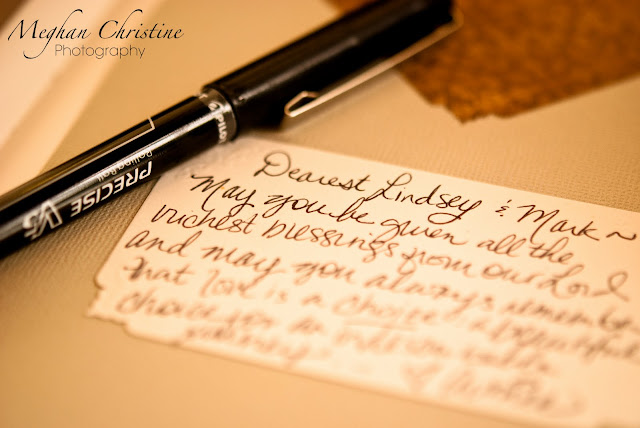 Meghan Christine
Photography
PRECISE V5
Rolling Ball
Dearest Lindsey & Mark ~
May you be given all the
richest blessings from our Lord
and may you always remember
that love is a choice a beautiful
choice you